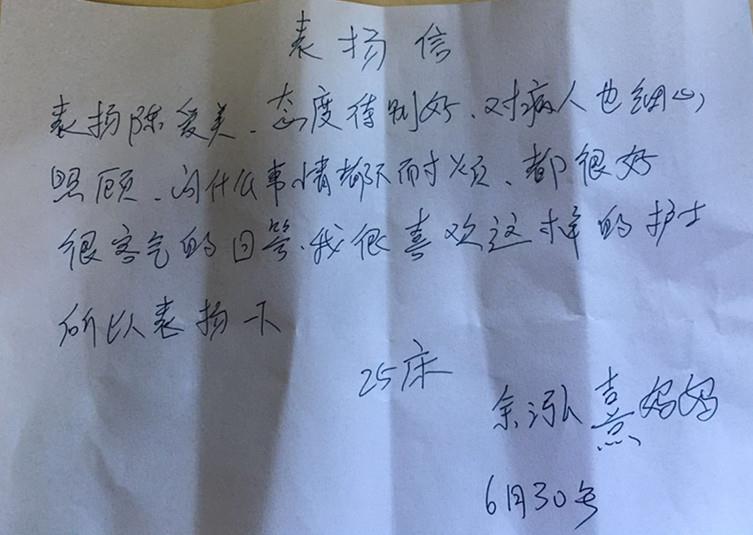 表扬信
表扬陈爱美、态度待别好、对病人也细心
照顾、问什么事情都不耐烦、都很好
很客气的回答.我很喜欢这样的护士
所以表扬一下
25床
余泓熹妈妈
6月30号